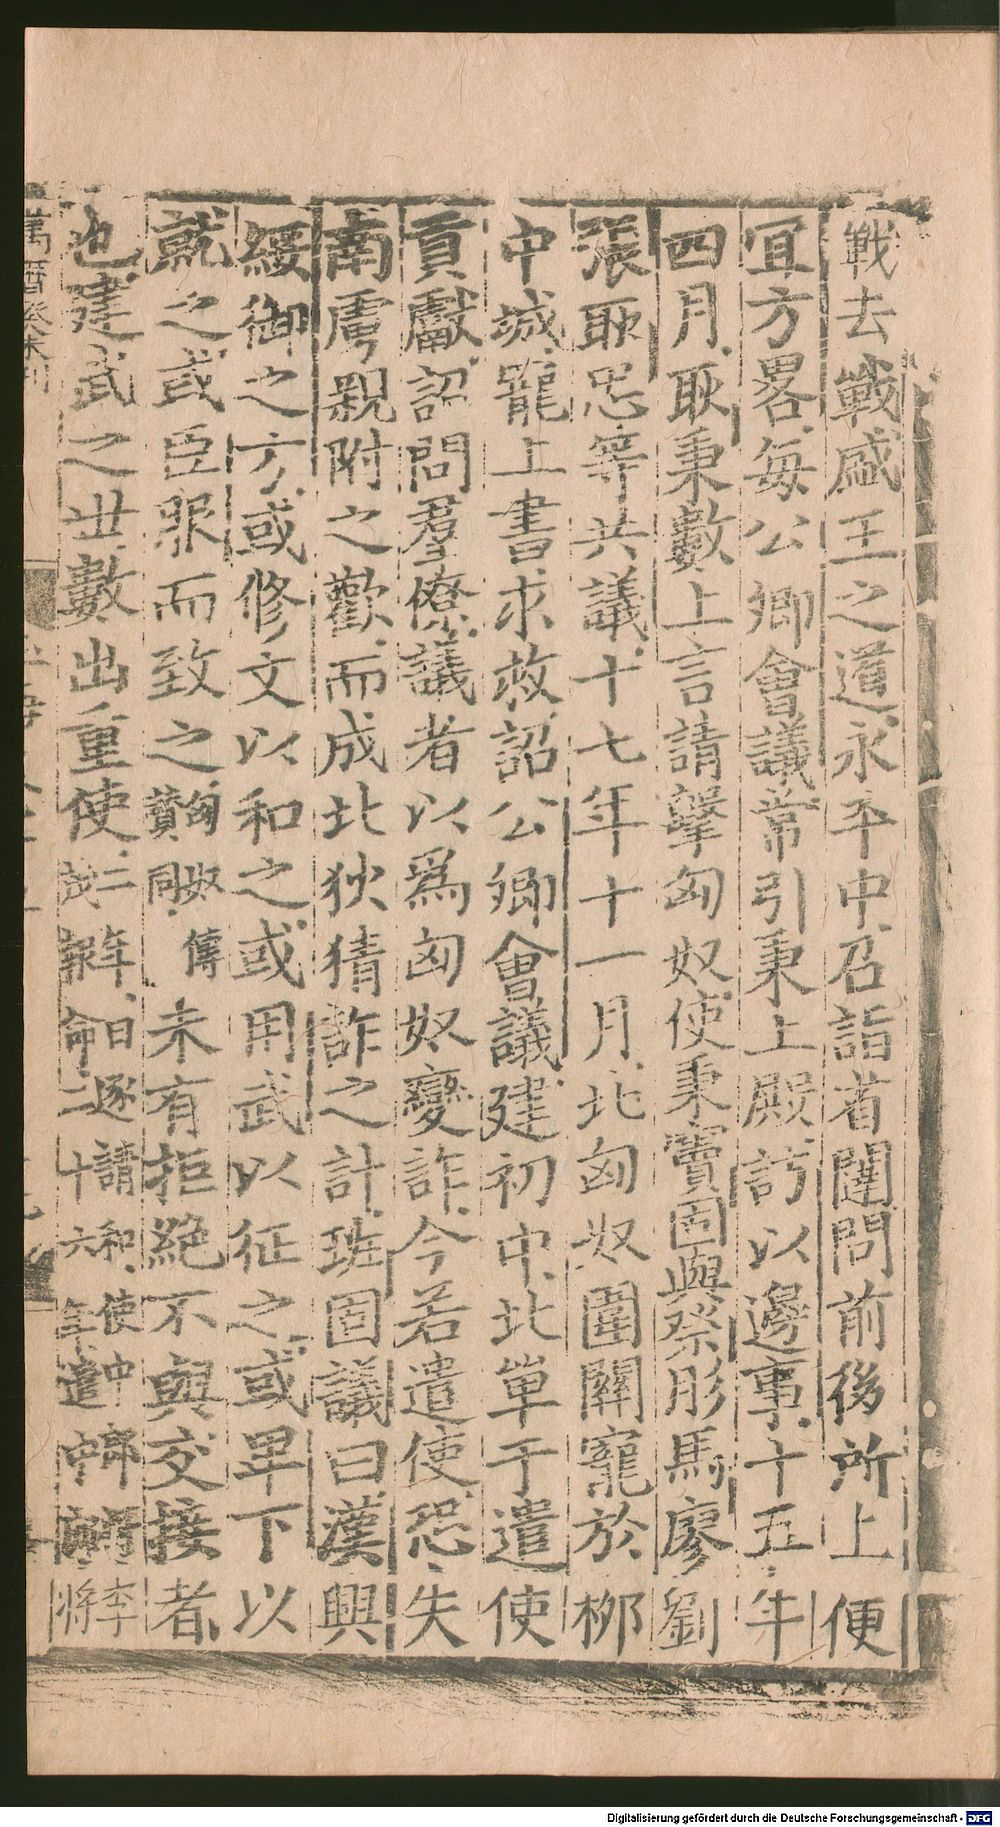 戰去戰盛王之道永平中召詣省闥問前後所上便
宜方畧每公卿會議常引秉上殿訪以邊事十五年
四月耿秉數上言請擊匈奴使秉竇固與祭肜馬廖劉
張耿忠等共議十七年十一月北匈奴圍關寵於柳
中城寵上書求救詔公卿會議建初中北單于遣使
貢獻詔問羣僚議者以爲匈奴變詐今若遣使恐失
南虜親附之歡而成北狄猜詐之計班固議曰漢興
綏御之方或修文以和之或用武以征之或卑下以
就之或臣服而致之匈奴傳贊同未有拒絶不與交接者
也建武之世數出重使二年日逐請和使中郎將李茂報命二十六年遣中郎將
萬曆癸未刊
Digitalisierung gefördert durch die Deutsche Forschungsgemeinschaft - DFG